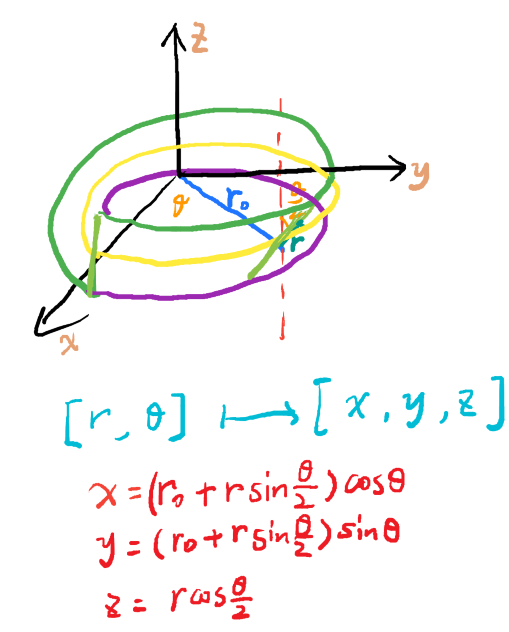 z
y
θ
r₀
θ/2
r
x
[r, θ] ⟼ [x, y, z]
x = (r₀ + r sin θ/2) cos θ
y = (r₀ + r sin θ/2) sin θ
z = r cos θ/2